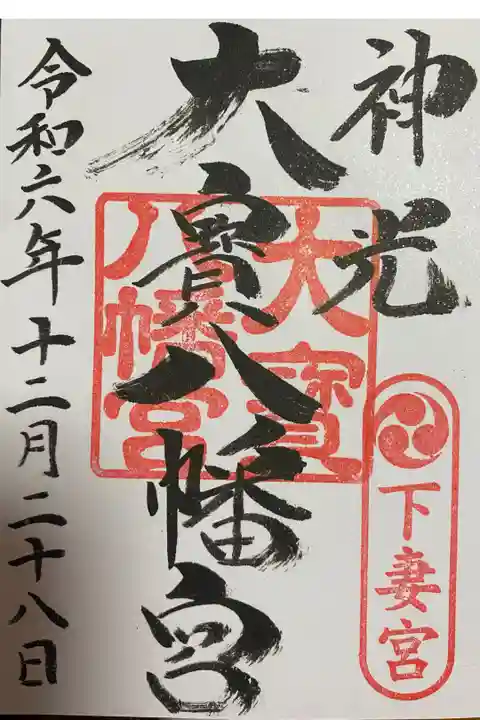 神光
下妻宮
大寳八幡宮
大寳
八幡宮
令和六年十二月二十八日